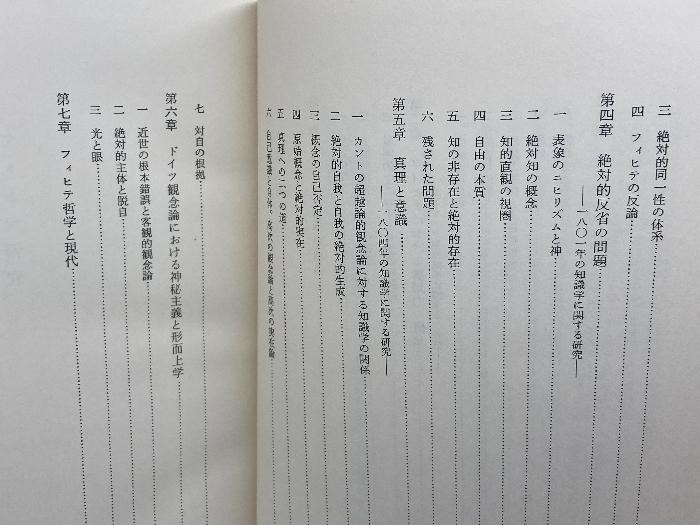 三 絶対的同一性の体系
四 フィヒテの反論
第四章 絶対的反省の問題
――一八〇一年の知識学に関する研究――
一 表象のニヒリズムと神
二 絶対知の概念
三 知的直観の視圏
四 自由の本質
五 知の非存在と絶対的存在
六 残された問題
第五章 真理と意識
――一八〇四年の知識学に関する研究――
一 カントの超越論的観念論に対する知識学の関係
二 絶対的自我と自我の絶対的生成
三 概念の自己否定
四 原始概念と絶対的実在
五 真理への二つの道
六 自己意識と自体、高次の観念論と高次の実在論
七 対自の根拠
第六章 ドイツ観念論における神秘主義と形而上学
一 近世の根本錯誤と客観的観念論
二 絶対的主体と脱自
三 光と眼
第七章 フィヒテ哲学と現代